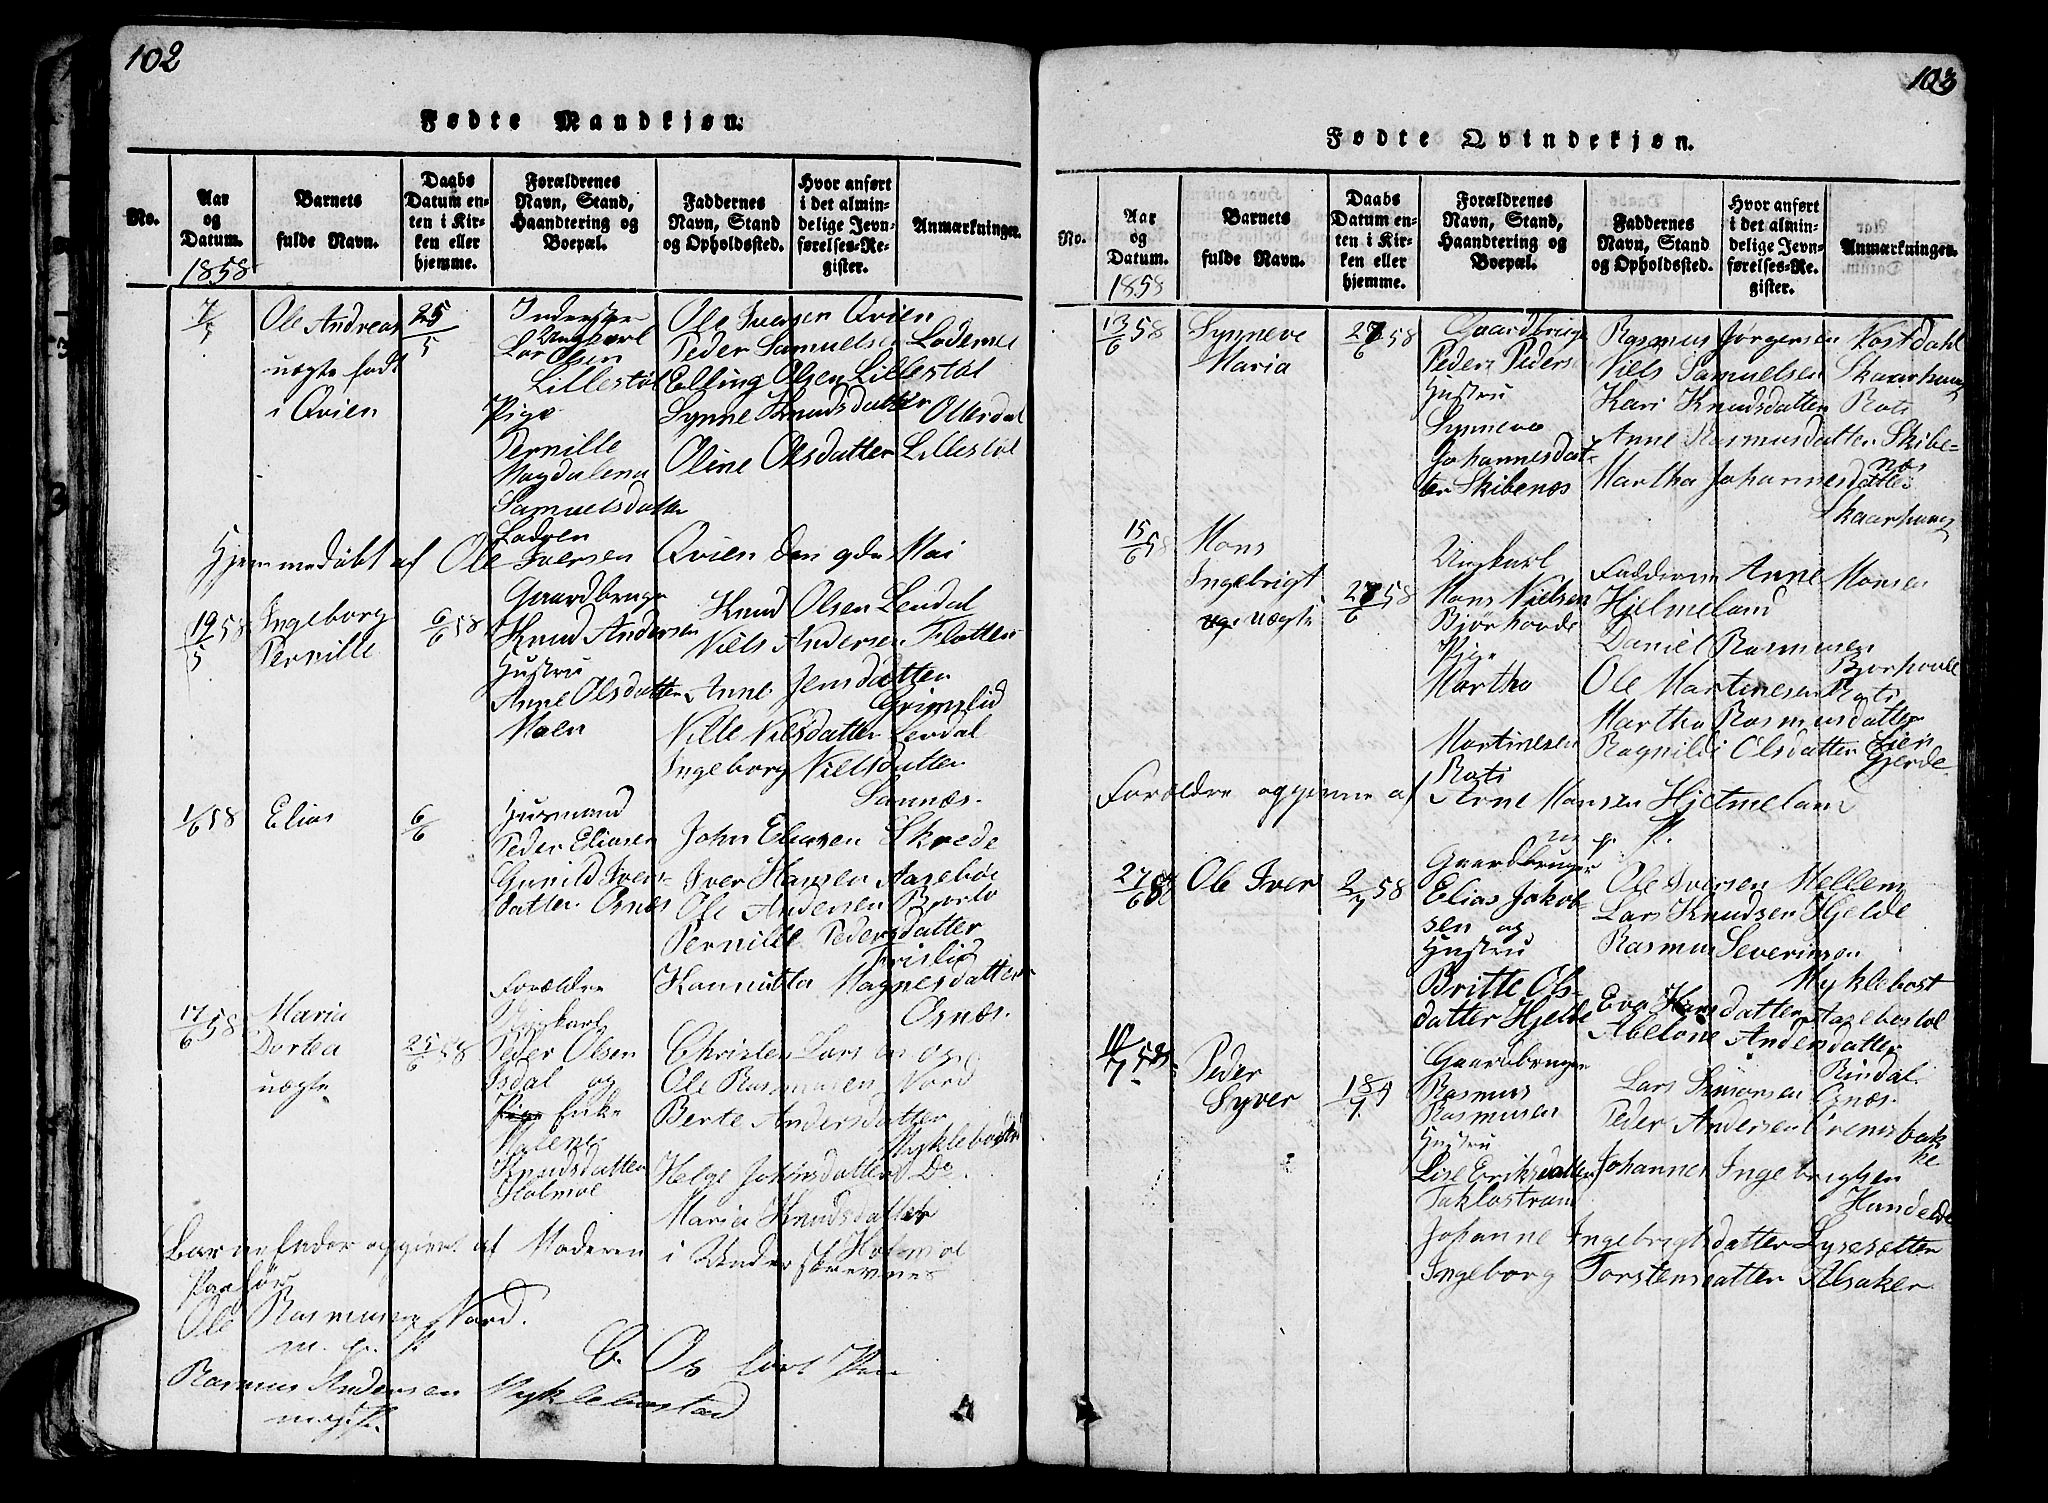 102
Fødte Mandkjøn.
No.
Aar
og
Datum.
1858
Barnets
fulde Navn.
Daabs
Datum en-
ten i Kir-
ken eller
hjemme.
Forældrenes
Navn, Stand,
Haandtering og
Boepæl.
Faddernes
Navn, Stand
og Opholdssted.
Hvor anført
i det almin-
delige Jevn-
førelses-Re-
gister.
Anmærkninger.
Ole Andreas
uægte født
i Qvien
25/5
Inderster
Ungkarl
Lar Olsen
Lillestøl
Pige
Pernille
Magdalena
Samuelsdatter
Lodøen
Ole Iversen Qvien
Peder Samuelsen Lodøene
Elling Olsen Lillestøl
Synne Knudsdatter Ollerdal
Oline Olsdatter Lillestøl
Hjemmedøbt af Ole Iversen Qvien den 9de Mai
19/5 58
Ingeborg
Pernille
6/6 58
Gaardbruger
Knud Andersen
Hustru
Anne Olsdatter
Moen
Knud Olsen Lerdal
Niels Andersen Flatten
Anne Jensdatter
Grimslid
Nille Nilsdatter Lerdal
Ingeborg Nielsdatter
Sannæs.
1/6 58
Elias
6/6
Husmand
Peder Eliasen
Gunild Ivers-
datter Osnæs
John Eliasen Skrede
Iver Hansen Aasebøe
Ole Andersen Bjorlo
Pernille Pedersdatter
Frislid
Hannitta Magnesdatter
Osnæs.
17/6 58
Maria
Dortea
uægte
25/6 58
Forældre
Ungkarl
Peder Olsen
Isdal og
Enke
Malene
Knudsdatter
Holmøe
Christen Larsen og
Ole Rasmusen Nord
Berte Andersdatter
Myklebostad
Helge Johnsdatter Do.
Maria Knudsdatter
Holmøe
Barnefader opgivet af Moderen i Underskrevnes
Paahør
Ole Rasmusen Nord.
m. p. P.
Rasmus Andersen Myklebostad
103
Fødte Qvindekjøn.
No.
Aar
og
Datum.
1858
Barnets
fulde Navn.
Daabs
Datum en-
ten i Kir-
ken eller
hjemme.
Forældrenes
Navn, Stand,
Haandtering og
Boepæl.
Faddernes
Navn, Stand
og Opholdssted.
Hvor anført
i det almin-
delige Jevn-
førelses-Re-
gister.
Anmærkninger.
13/6 58
Synneve
Maria
27/6 58
Gaardbruge
Peder Peders
Hustru
Synneve
Johannesdat-
ter Skibenæs
Rasmus Jørgensen Nostdahl
Niels Samuelsen Skaarhaug
Kari Knudsdatter Roti
Anne Rasmusdatter Skibe-
næs
Martha Johannesdatter
Skaarhaug
15/6 58
Mons
Ingebrigt
uægte
27/6 58
Ungkarl
Mons Nielsen
Bjørhovde
Pige
Martha
Martinesen
Roti
Fadderne Anne Monsen
Hjelmeland
Daniel Rasmusen
Bjorhovde
Ole Martinesen Roti
Martha Rasmusdatter
Lien
Ragnildi Olsdatter Gjerde
Forældre opgivne af Arne Monsen Hjelmeland
m. p. P.
27/6 58
Ole Iver
2/7 58
Gaardbruger
Elias Jakob-
sen og
Hustru
Britte Ols-
datter Hjelde
Ole Iversen Hellem
Lars Knudsen Hjelde
Rasmus Severinsen
Myklebost
Eva Hansdatter Aasebostøl
Abelone Andersdatter
Rindal.
10/7 58
Peder
Syver
18/7
Gaardbruger
Rasmus
Rasmusen
Hustru
Lise Eriksdatter
Taklostrand
Lars Simonsen Osnæs.
Peder Andersen Orensbak
ke
Johannes Ingebrigtsen
Hundeide
Johanne Ingebrigtsdatter Lysesætter
Ingeborg Torstensdatter Alsaker